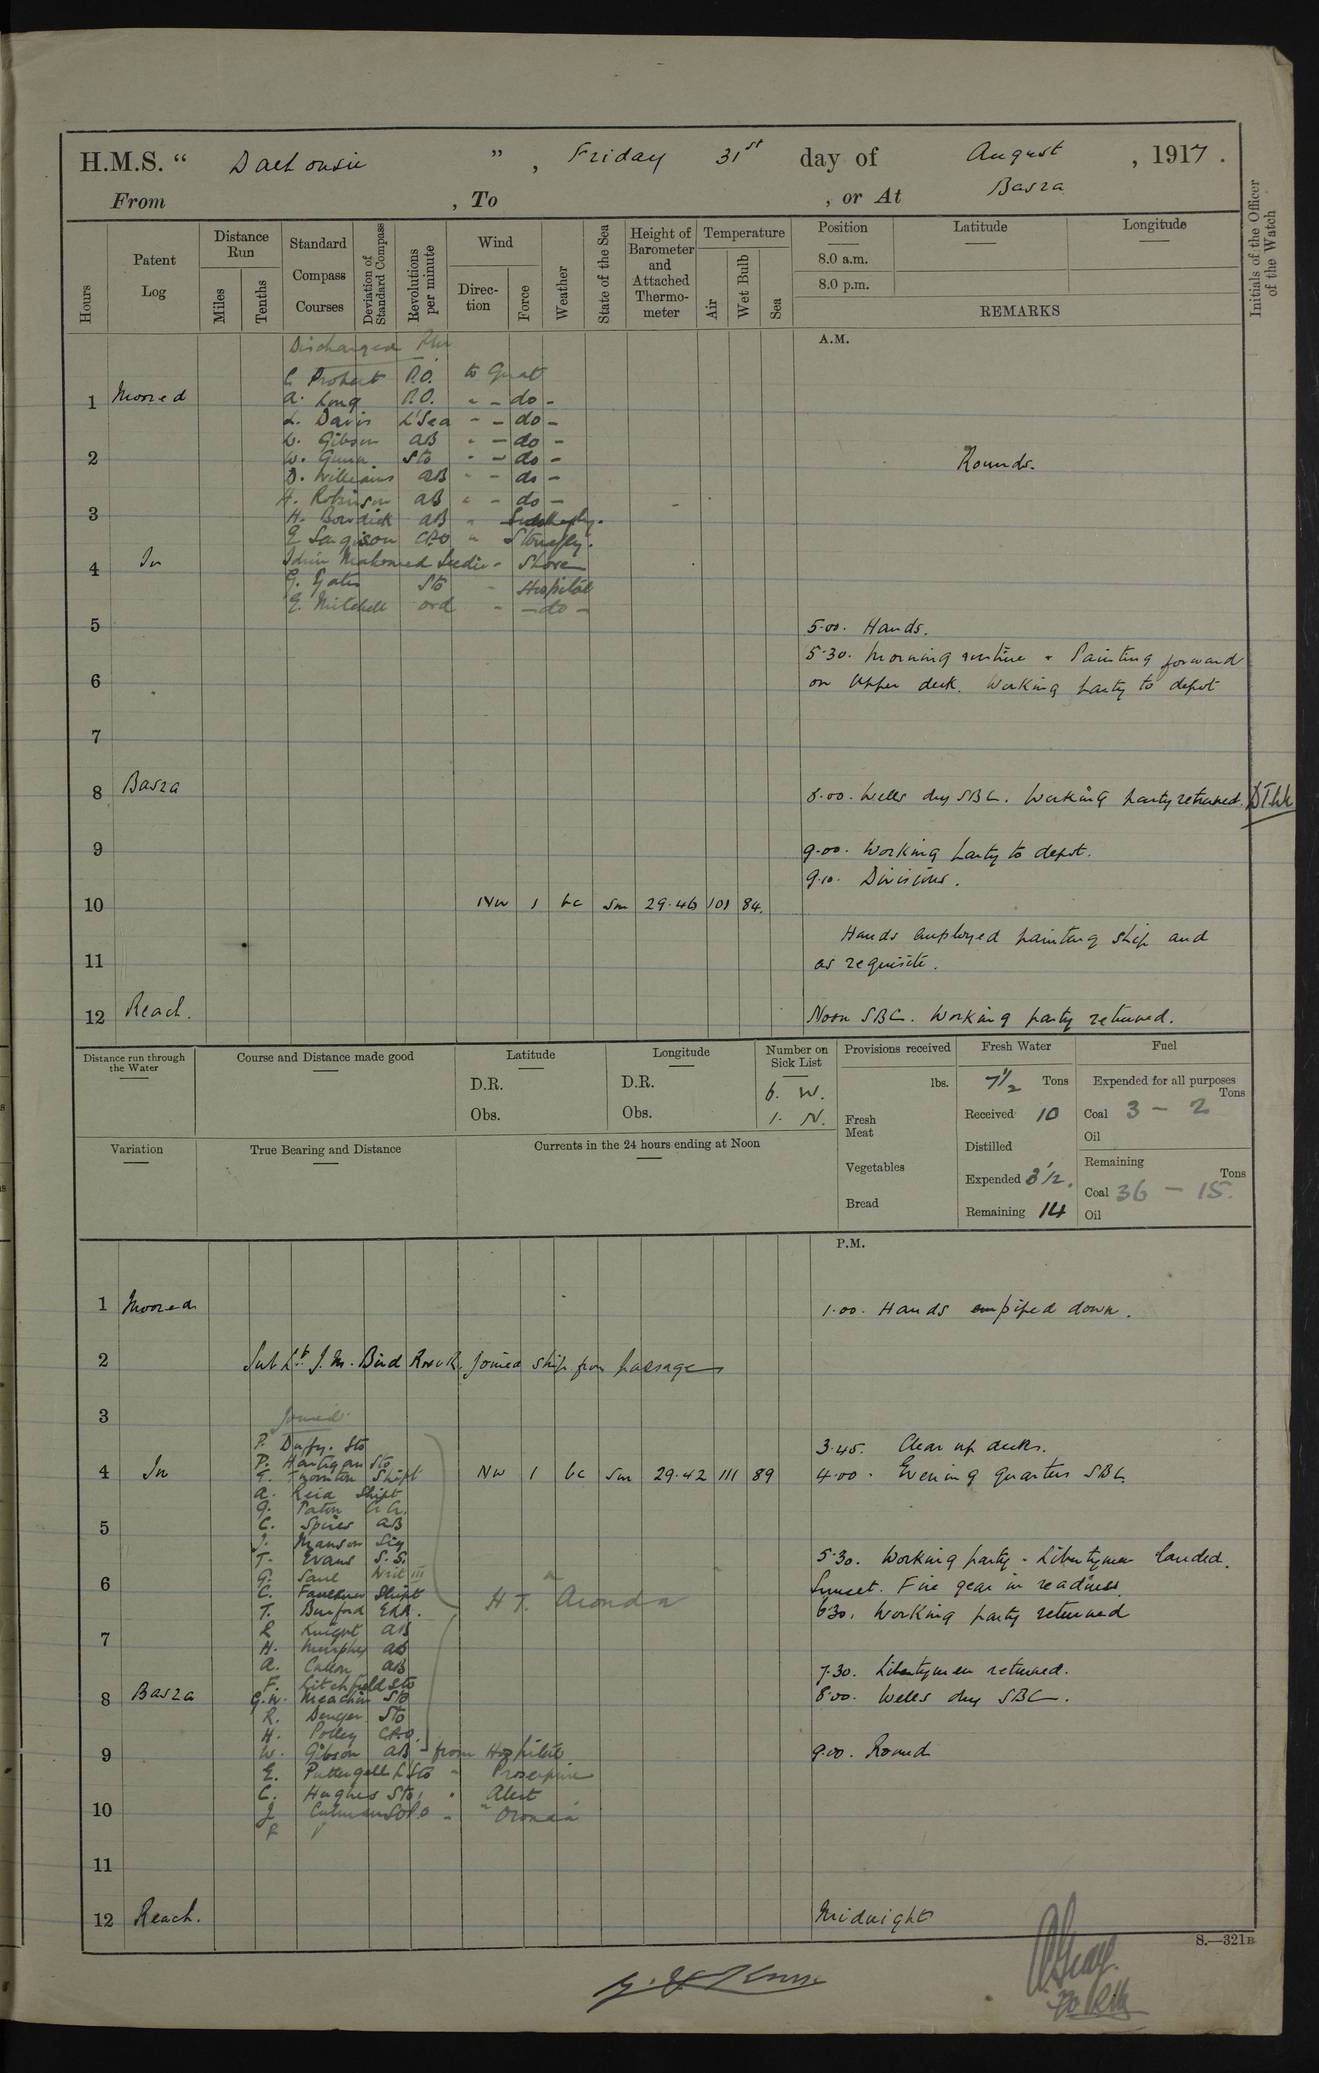 H.M.S. “ Dalhousie ” , Friday 31st day of August , 1917 .
From , To , or At Basra
Hours
Patent Log
Distance Run
Miles
Tenths
Standard Compass Courses
Deviation of Standard Compass
Revolutions per minute
Wind
Direction
Force
Weather
State of the Sea
Height of Barometer and Attached Thermometer
Temperature
Air
Wet Bulb
Sea
Position
8.0 a.m.
8.0 p.m.
Latitude
Longitude
REMARKS
Initials of the Officer of the Watch
A.M.
Discharged
C. Probert P.O. to Gnat
1 Moored
A. Long P.O. " - do -
L. Davis L'Sea - - do -
W. Gibson AB " - do -
2
W. Gunn Sto " - do -
Rounds.
D. Williams AB " - do -
H. Robinson AB " - do -
3
H. Bowdick AB "
E Sargison CPO " Stonefly.
4 In
Idris Mahomed Seedie - Shore
G. Yates Sto - Hospital
E. Mitchell ord - - do -
5
5.00. Hands.
5.30. Morning routine - Painting forward
6
on Upper deck. Working party to depot
7
8 Basra
8.00. Wells dry SBC. Working party returned.
9
9.00. Working party to depot.
9.10. Divisions.
10 NW 1 bc sm 29.46 101 84.
Hands employed painting ship and
11
as requisite.
12 Reach.
Noon SBC. Working party returned.
Distance run through the Water
Course and Distance made good
Latitude
D.R.
Obs.
Longitude
D.R.
Obs.
Number on Sick List
6. W.
1. N.
Provisions received
lbs.
Fresh Meat
Vegetables
Bread
Fresh Water
7½ Tons
Received 10
Distilled
Expended 3½.
Remaining 14
Fuel
Expended for all purposes
Tons
Coal 3 - 2
Oil
Remaining
Tons
Coal 36 - 15.
Oil
Variation
True Bearing and Distance
Currents in the 24 hours ending at Noon
P.M.
1 Moored
1.00. Hands piped down.
2
Sub Lt. J. M. Bird joined ship for passage
3
Joined
P. Duffy. Sto
3.45. Clear up decks.
P. Hartigan Sto
4 In
T. Thornton Shipt
NW 1 bc sm 29.42 111 89
4.00. Evening quarters SBC.
A. Reid Shipt
G. Paton
C. Spires AB
5
J. Manson Sig
T. Evans S.S.
5.30. Working party - Libertymen landed.
G. Saul Writ III
6
C. Faulkner Shipt
Sunset. Fire gear in readiness.
T. Burford ERA.
H.T. "Aronda
6.30. Working party returned
R Knight AB
7
H. Murphy AB
A. AB
7.30. Libertymen returned.
F. Litchfield Sto
8 Basra
G.W. Meachin Sto
8.00. Wells dry SBC.
R. Sto
H. Polley CPO.
9
W. Gibson AB - from Hospital
9.00. Round
E. Puttergill L Sto " Proserpine
C. Hughes Sto. " Alert
10
J " "Oronda
11
12 Reach.
Midnight
S.—321B